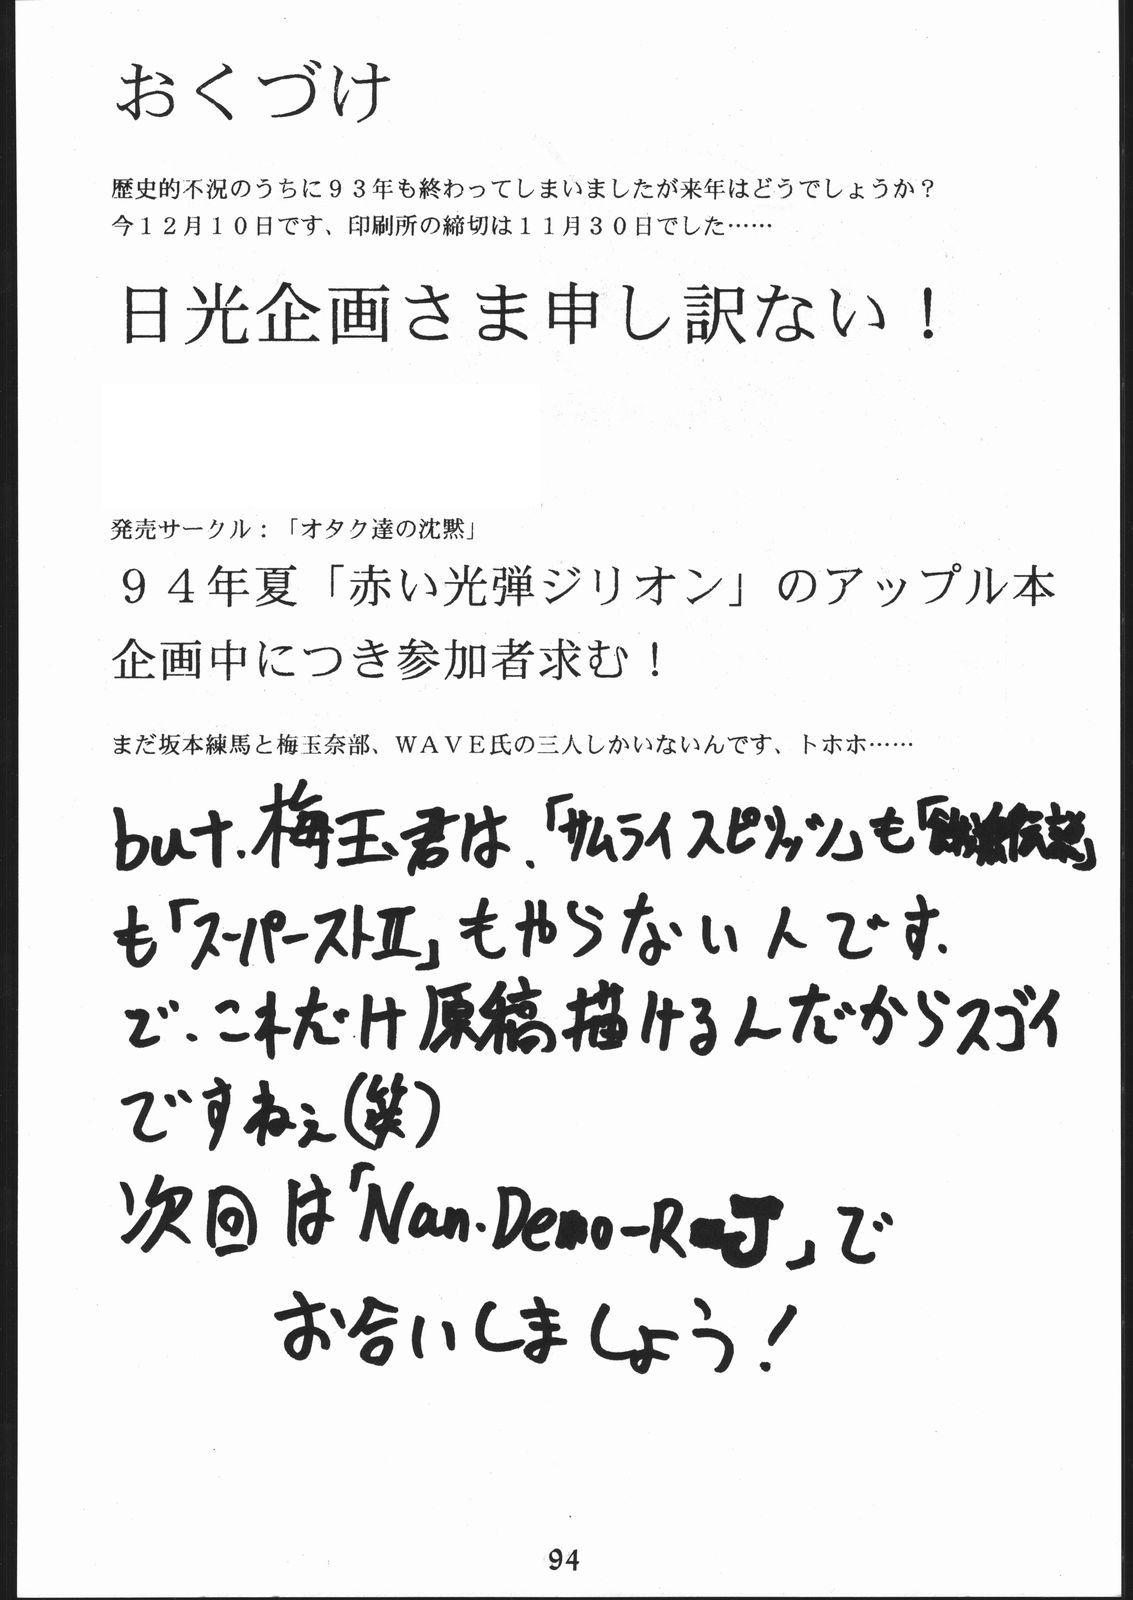 おくづけ
歴史的不況のうちに９３年も終わってしまいましたが来年はどうでしょうか？
今１２月１０日です、印刷所の締切は１１月３０日でした……
日光企画さま申し訳ない！
発売サークル：「オタク達の沈黙」
９４年夏「赤い光弾ジリオン」のアップル本
企画中につき参加者求む！
まだ坂本練馬と梅玉奈部、ＷＡＶＥ氏の三人しかいないんです、トホホ……
but.梅玉君は、「サムライスピリッツ」も「伝説」
も「スーパーストⅡ」もやらない人です.
で、これだけ原稿描けるんだからスゴイ
ですねぇ(笑)
次回は「Nan・Demo-R-J」で
お合いしましょう!
94